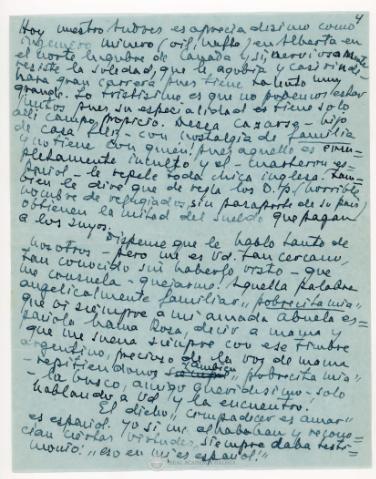 4
Hoy nuestro Tudores es apreciadísimo como
ingeniero minero (oil, muflo) en Alberta en
el norte lugubre de Canadá y si, nerviosamente
resiste la soledad, que le agobia y casi rinde
hara gran carrera pues tiene talento muy
grande. Lo tristísimo es que no podemos estar
juntos pues su especialidad es tiene solo
alli campo propicio. Desea cazarse - hijo
de casa feliz - con nostalgia de familia
y no tiene con quien! pues aquello es com-
pletamente inculto y el -
- le repele toda chica inglesa. Tam-
bien le diré que de regla los D.P.s (horrible
nombre de refugiados, sin pasaporte de su país)
obtienen la mitad del sueldo que pagan
a los suyos.
Dispense que le hablo tanto de
nosotros - pero me es Vd. tan cercano,
tan conocido sin haberlo visto - que
me consuela - quejarme! Aquella palabra
angelicalmente familiar "pobrecita mía"
que oí siempre a mi amada Abuela es-
pañola mama Rosa, decir a mama y
que me suena siempre con ese timbre
argentino, precioso de la voz de mama
- repitiendonos también "pobrecita mía"
- la busco, amigo queridísimo - solo
hablando a Vd. y la encuentro!
El dicho "compadecer es amar"
es español. Yo si me alababan y recono-
cían ciertas virtudes, siempre daba testi-
monio: "eso en mí es español!"
REAL ACADEMIA GALEGA